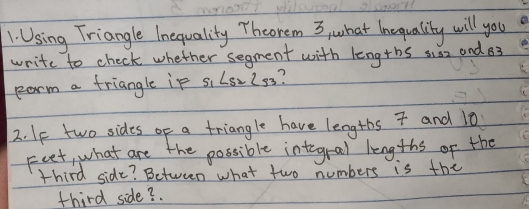 1. Using Triangle Inequality Theorem 3, what Inequality will you
write to check whether segment with lengths s1 s2 and s3
form a triangle if s1 < s2 < s3?
2. If two sides of a triangle have lengths 7 and 10
Feet, what are the possible integral lengths of the
third side? Between what two numbers is the
third side?.